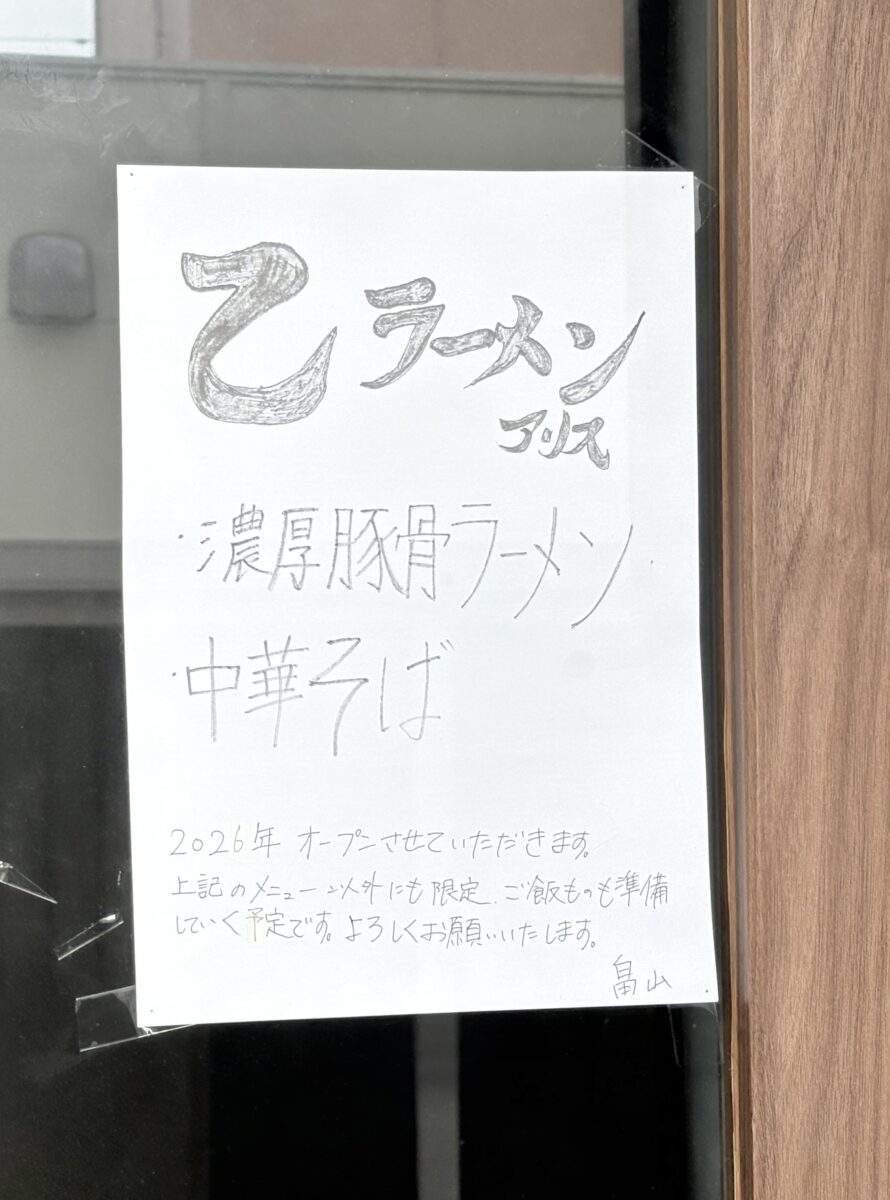 乙ラーメン
アリス
・濃厚豚骨ラーメン
・中華そば
2026年 オープンさせていただきます。
上記のメニュー以外にも限定、ご飯ものも準備
していく予定です。よろしくお願いいたします。
畠山